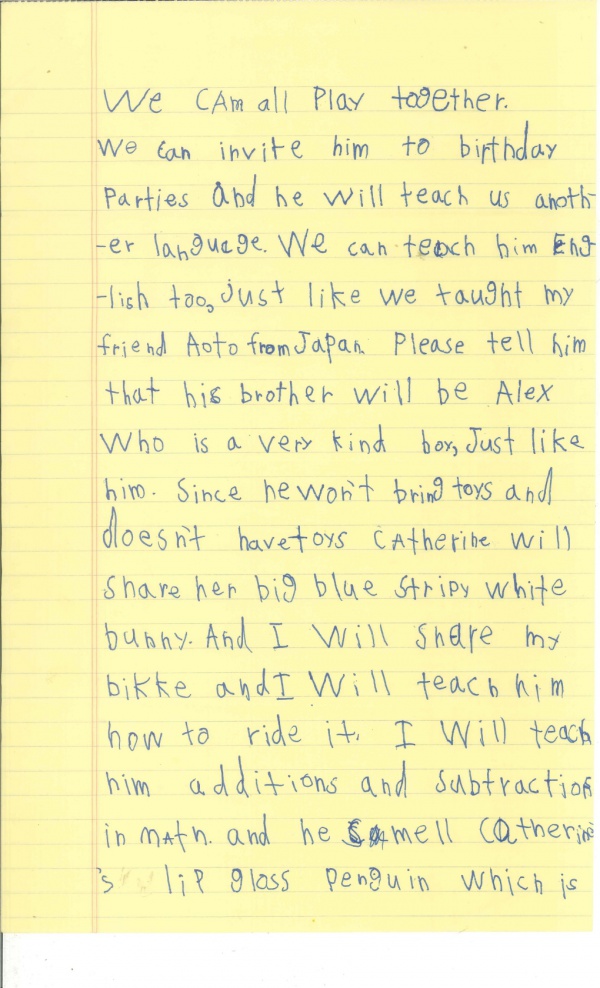 We CAm all Play together.
We can invite him to birthday
Parties and he will teach us anoth-
-er language. We can teach him Eng
-lish too, just like we taught my
friend Aoto from Japan. Please tell him
that his brother will be Alex
Who is a very kind boy, Just like
him. Since he won't bring toys and
doesn't have toys CAtherine will
share her big blue Stripy white
bunny. And I Will Share my
bikke and I Will teach him
how to ride it. I Will teach
him additions and subtraction
in mAth. and he smell Catherine
's lip gloss Penguin which is